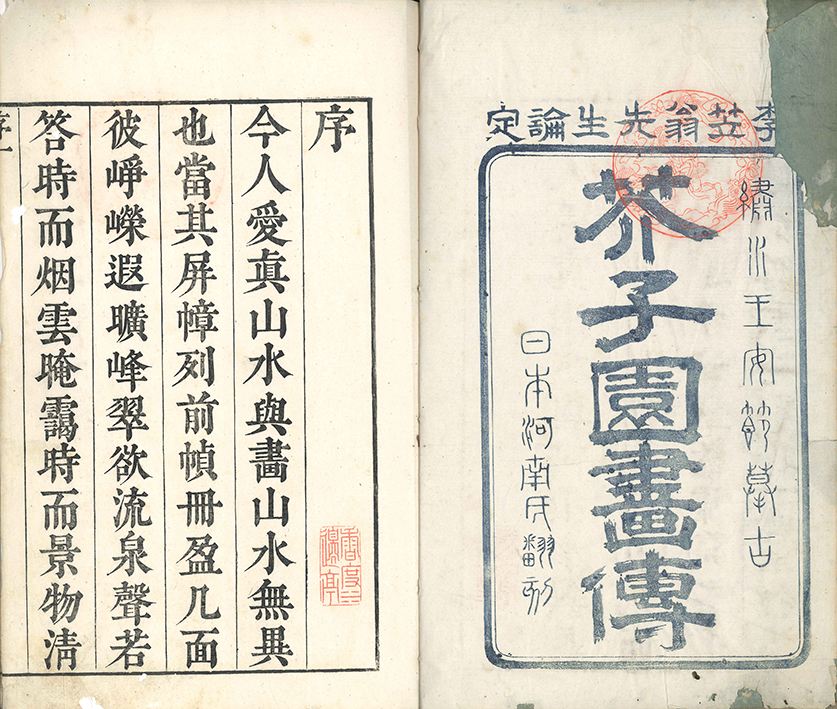 李笠翁先生論定
繡水王安節摹古
芥子園畫傳
日本河南氏翻刻
序
今人愛眞山水與畫山水無異
也當其屏幛列前幀冊盈几面
彼崢嶸遐曠峰翠欲流泉聲若
答時而烟雲晻靄時而景物清